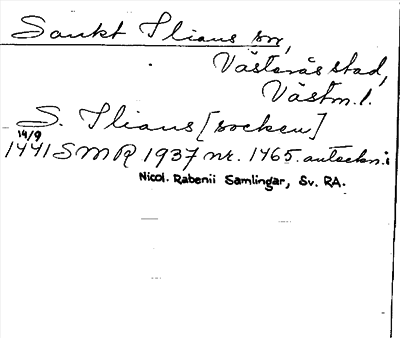 Sankt Ilians sn,
Västerås stad,
Västm.l.
S. Ilians [socken]
14/9
1441 SMR 1937 nr. 1465. anteckn. i
Nicol. Rabenii Samlingar, Sv. RA.